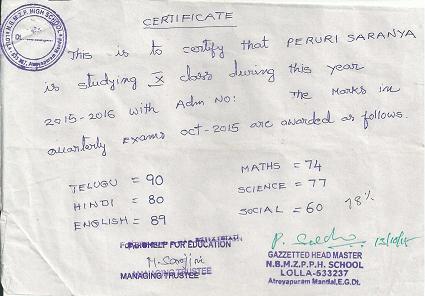 CERTIFICATE
This is to certify that PERURI SARANYA
is studying X class during this year
2015-2016 with Adm No: The Marks in
Quarterly Exams Oct-2015 are awarded as follows.
TELUGU = 90
HINDI = 80
ENGLISH = 89
MATHS = 74
SCIENCE = 77
SOCIAL = 60 78%
HELP FOR EDUCATION
M. Sarojini
MANAGING TRUSTEE
GAZZETTED HEAD MASTER
N.B.M.Z.P.P.H. SCHOOL
LOLLA-533237
Atreyapuram Mandal, E.G.Dt.